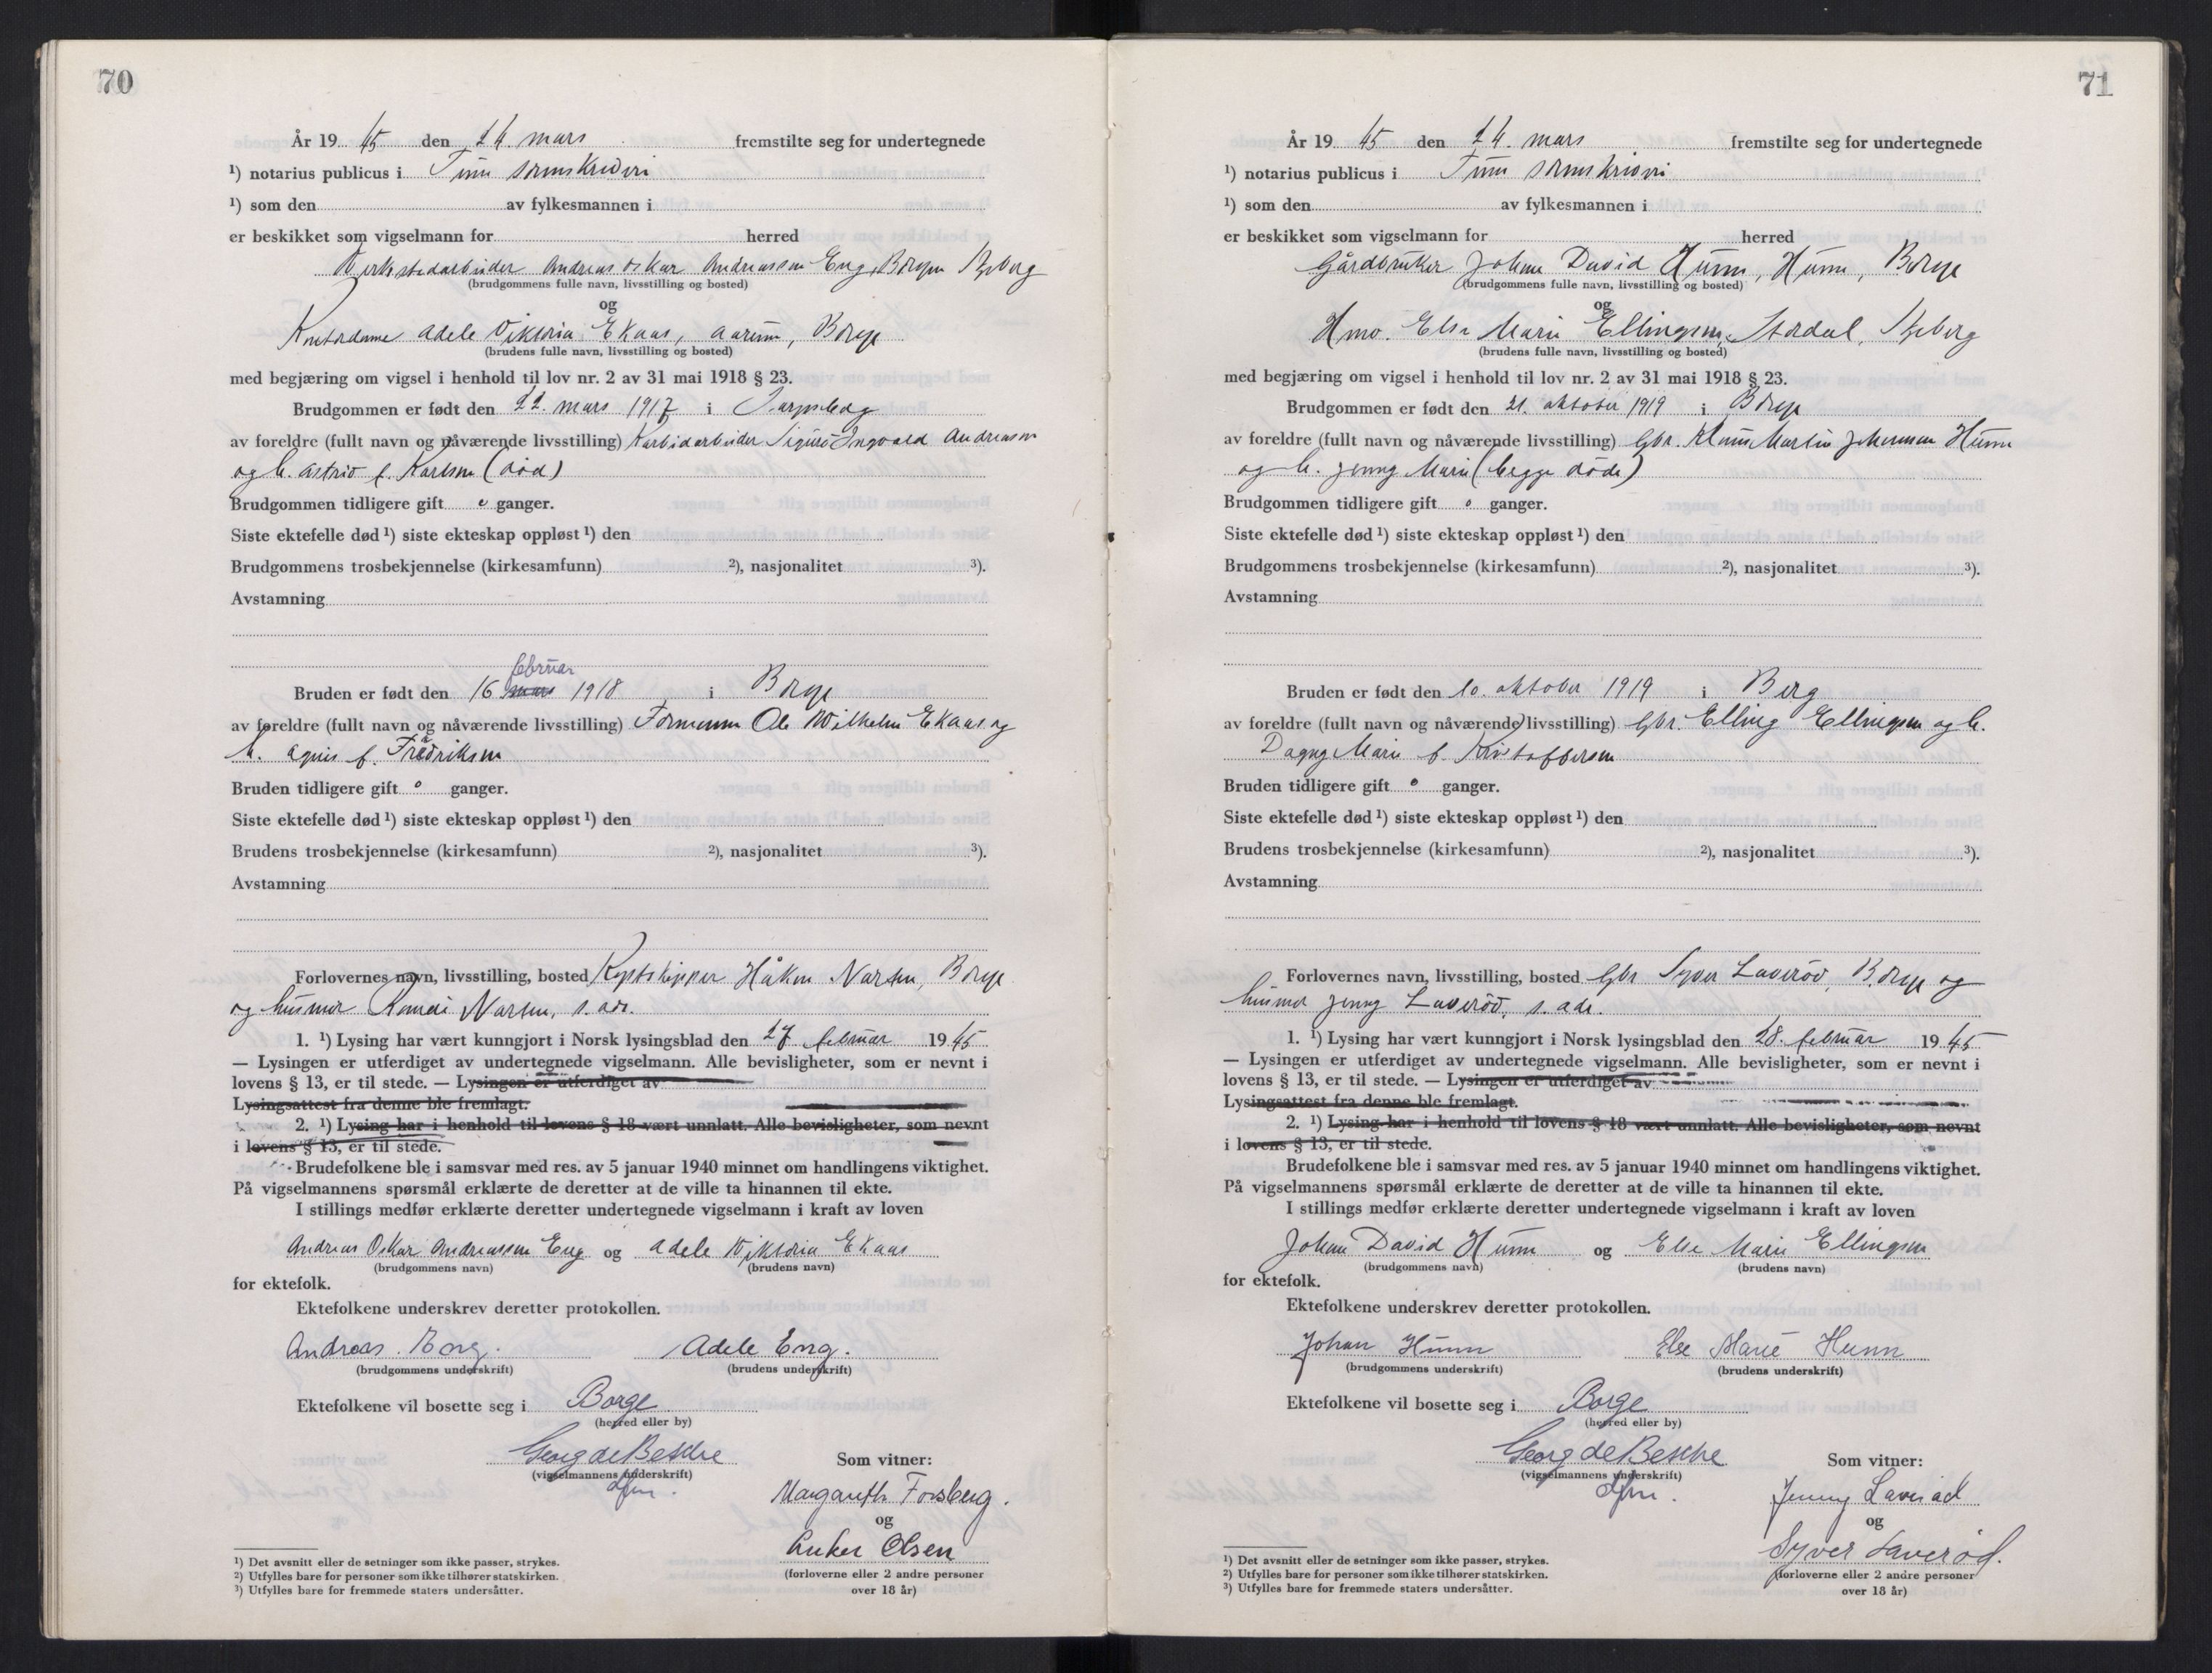 70
År 19 45 den 24. mars fremstilte seg for undertegnede
¹) notarius publicus i Tune sorenskriveri
¹) som den av fylkesmannen i
er beskikket som vigselmann for herred
Verkstedarbeider Andreas Oskar Andreassen Eng, Borgen Skjeberg
(brudgommens fulle navn, livsstilling og bosted)
og
Kontordame Adele Viktoria Ekaas, Aarum, Borge
(brudens fulle navn, livsstilling og bosted)
med begjæring om vigsel i henhold til lov nr. 2 av 31 mai 1918 § 23.
Brudgommen er født den 22. mars 1917 i Sarpsborg
av foreldre (fullt navn og nåværende livsstilling) Karbidarbeider Sigurd Ingvald Andreassen
og h. Astrid f. Karlsen (død)
Brudgommen tidligere gift 0 ganger.
Siste ektefelle død ¹) siste ekteskap oppløst ¹) den
Brudgommens trosbekjennelse (kirkesamfunn) ²), nasjonalitet ³).
Avstamning
februar
Bruden er født den 16 mars 1918 i Borge
av foreldre (fullt navn og nåværende livsstilling) Formann Ole Wilhelm Ekaas og
h. Agnis f. Fredriksen
Bruden tidligere gift 0 ganger.
Siste ektefelle død ¹) siste ekteskap oppløst ¹) den
Brudens trosbekjennelse (kirkesamfunn) ²), nasjonalitet ³).
Avstamning
Forlovernes navn, livsstilling, bosted Kystskipper Håkon Narten, Borge
og husmor Narten, s. adr.
1. ¹) Lysing har vært kunngjort i Norsk lysingsblad den 27 februar 19 45
— Lysingen er utferdiget av undertegnede vigselmann. Alle bevisligheter, som er nevnt i
lovens § 13, er til stede. — Lysingen er utferdiget av
Lysingsattest fra denne ble fremlagt.
2. ¹) Lysing har i henhold til lovens § 18 vært unnlatt. Alle bevisligheter, som nevnt
i lovens § 13, er til stede.
Brudefolkene ble i samsvar med res. av 5 januar 1940 minnet om handlingens viktighet.
På vigselmannens spørsmål erklærte de deretter at de ville ta hinannen til ekte.
I stillings medfør erklærte deretter undertegnede vigselmann i kraft av loven
Andreas Oskar Andreassen Eng og Adele Viktoria Ekaas
(brudgommens navn) (brudens navn)
for ektefolk.
Ektefolkene underskrev deretter protokollen.
Andreas Eng. Adele Eng.
(brudgommens underskrift) (brudens underskrift)
Ektefolkene vil bosette seg i Borge
(herred eller by)
Georg de Besche
(vigselmannens underskrift)
Som vitner:
Margareth Forsberg.
og
Anker Olsen
(forloverne eller 2 andre personer
over 18 år)
¹) Det avsnitt eller de setninger som ikke passer, strykes.
²) Utfylles bare for personer som ikke tilhører statskirken.
³) Utfylles bare for fremmede staters undersåtter.
71
År 19 45 den 24. mars fremstilte seg for undertegnede
¹) notarius publicus i Tune sorenskriveri
¹) som den av fylkesmannen i
er beskikket som vigselmann for herred
Gårdbruker Johan David Hunn, Hunn, Borge
(brudgommens fulle navn, livsstilling og bosted)
og
Hmo. Else Marie Ellingsen, Stordal, Skjeberg
(brudens fulle navn, livsstilling og bosted)
med begjæring om vigsel i henhold til lov nr. 2 av 31 mai 1918 § 23.
Brudgommen er født den 21. oktober 1919 i Borge
av foreldre (fullt navn og nåværende livsstilling) Gbr. Martin Johannesen Hunn
og h. Jenny Marie (begge døde)
Brudgommen tidligere gift 0 ganger.
Siste ektefelle død ¹) siste ekteskap oppløst ¹) den
Brudgommens trosbekjennelse (kirkesamfunn) ²), nasjonalitet ³).
Avstamning
Bruden er født den 10. oktober 1919 i Berg
av foreldre (fullt navn og nåværende livsstilling) Gbr. Elling Ellingsen og h.
Dagny Marie f. Kristoffersen
Bruden tidligere gift 0 ganger.
Siste ektefelle død ¹) siste ekteskap oppløst ¹) den
Brudens trosbekjennelse (kirkesamfunn) ²), nasjonalitet ³).
Avstamning
Forlovernes navn, livsstilling, bosted Gbr Syver Laverød, Borge og
husmor Jenny Laverød, s. adr.
1. ¹) Lysing har vært kunngjort i Norsk lysingsblad den 28. februar 19 45
— Lysingen er utferdiget av undertegnede vigselmann. Alle bevisligheter, som er nevnt i
lovens § 13, er til stede. — Lysingen er utferdiget av
Lysingsattest fra denne ble fremlagt.
2. ¹) Lysing har i henhold til lovens § 18 vært unnlatt. Alle bevisligheter, som nevnt
i lovens § 13, er til stede.
Brudefolkene ble i samsvar med res. av 5 januar 1940 minnet om handlingens viktighet.
På vigselmannens spørsmål erklærte de deretter at de ville ta hinannen til ekte.
I stillings medfør erklærte deretter undertegnede vigselmann i kraft av loven
Johan David Hunn og Else Marie Ellingsen
(brudgommens navn) (brudens navn)
for ektefolk.
Ektefolkene underskrev deretter protokollen.
Johan Hunn Else Marie Hunn
(brudgommens underskrift) (brudens underskrift)
Ektefolkene vil bosette seg i Borge
(herred eller by)
Georg de Besche
(vigselmannens underskrift)
Som vitner:
Jenny Laverød
og
Syver Laverød.
(forloverne eller 2 andre personer
over 18 år)
¹) Det avsnitt eller de setninger som ikke passer, strykes.
²) Utfylles bare for personer som ikke tilhører statskirken.
³) Utfylles bare for fremmede staters undersåtter.